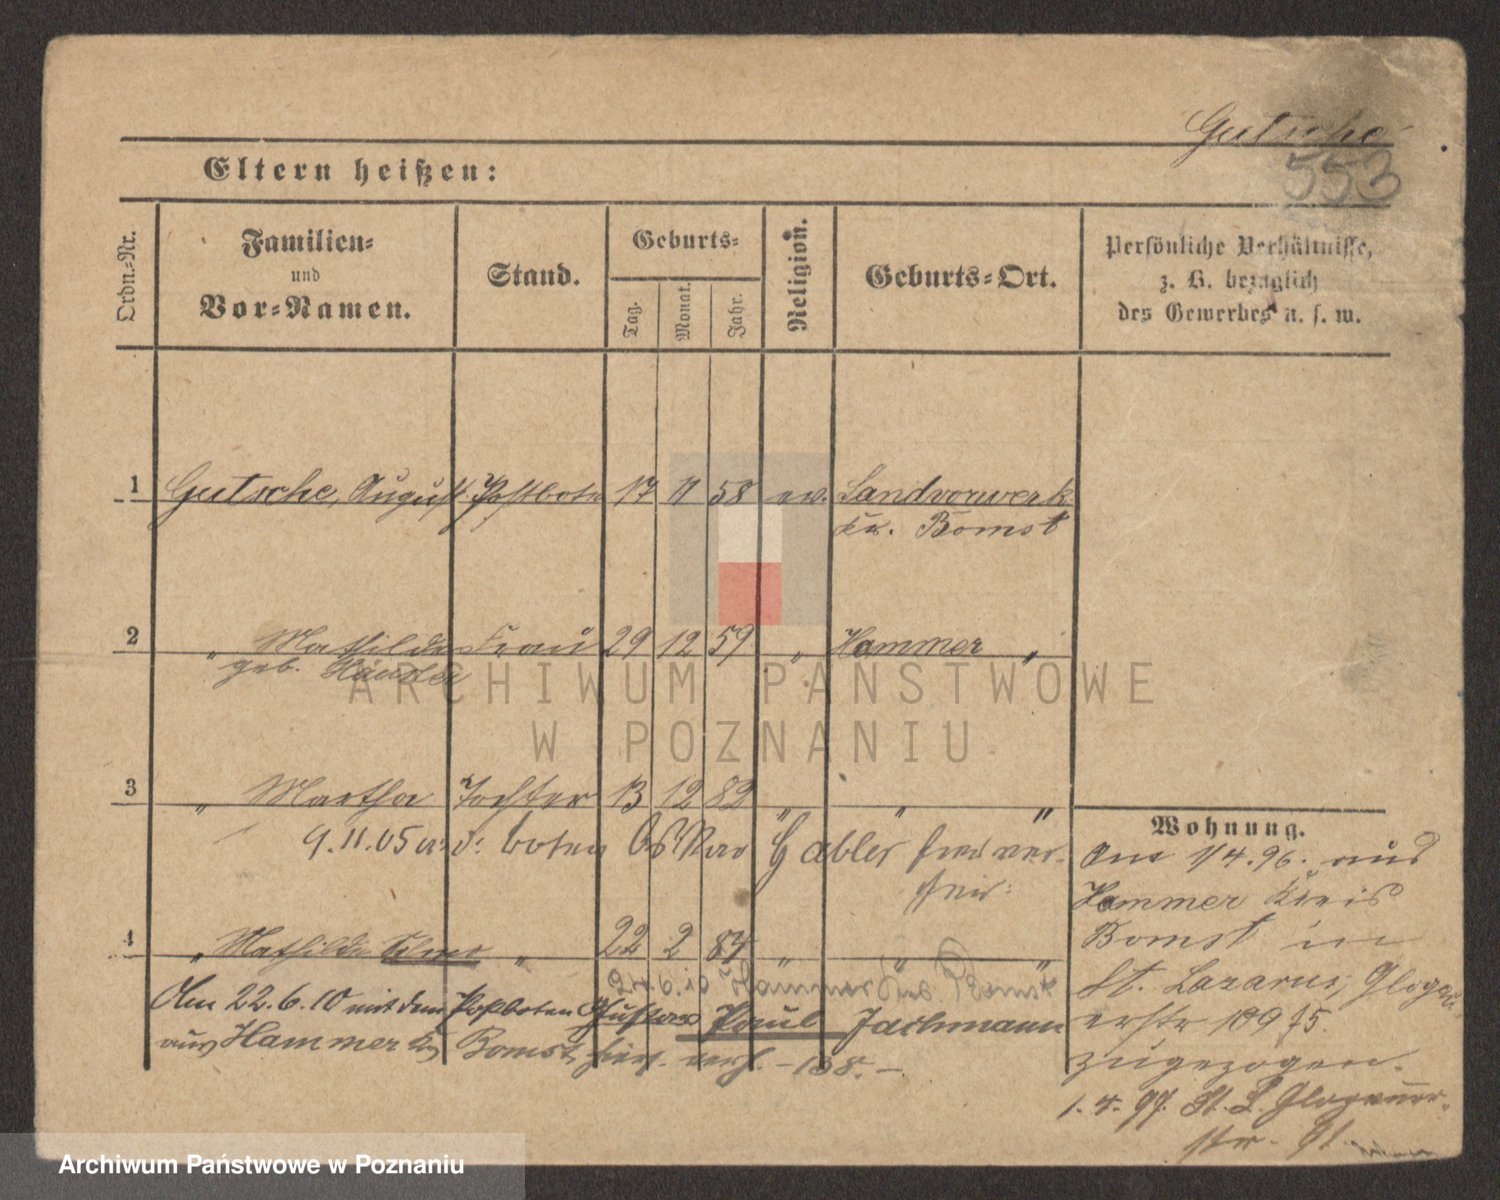 Gutsche
553
Eltern heißen:
Ordn.-Nr.
Familien-
und
Vor-Namen.
Stand.
Geburts-
Tag.
Monat.
Jahr.
Religion.
Geburts-Ort.
Persönliche Verhältnisse,
z. B. bezüglich
des Gewerbes u. s. w.
1 Gutsche, August Postbote 17 11 58 ev. Landvorwerk
Kr. Bomst
2 " Mathilde Frau 29 12 59 " Hammer "
geb.
3 " Martha Tochter 13 12 82 " " "
9.11.05 Gabler
4 " Mathilde " 22 2 84 " " "
24.6.10 Hammer Bomst
Am 22.6.10 mit dem Postboten Gustav Paul Jachmann
aus Hammer Bomst hier verh. - 138. -
Wohnung.
Am 1/4.96. aus
Hammer Kreis
Bomst in
St. Lazarus, Glogau
erstr
zugezogen.
1.4.97. St. L. Glogauer-
str.
ARCHIWUM PAŃSTWOWE
W POZNANIU
Archiwum Państwowe w Poznaniu